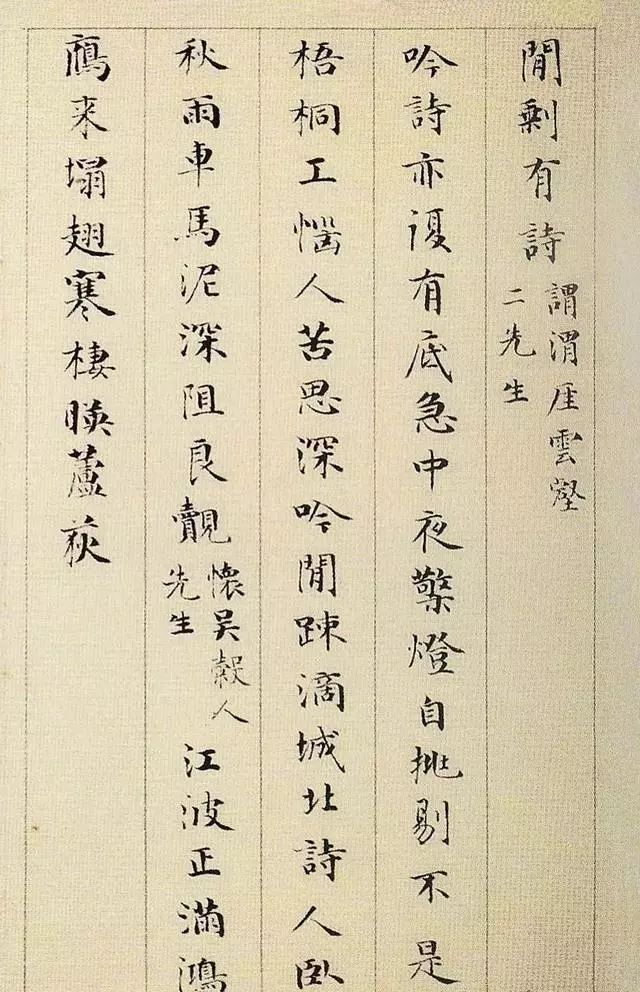 閒剩有詩 謂渭厓雲壑二先生
吟詩亦復有底急中夜擎燈自挑剔不是
梧桐工惱人苦思深吟閒踈滴城北詩人臥
秋雨車馬泥深阻良覿 懷吴穀人先生 江波正滿鴻
鴈来塌翅寒棲暎蘆荻